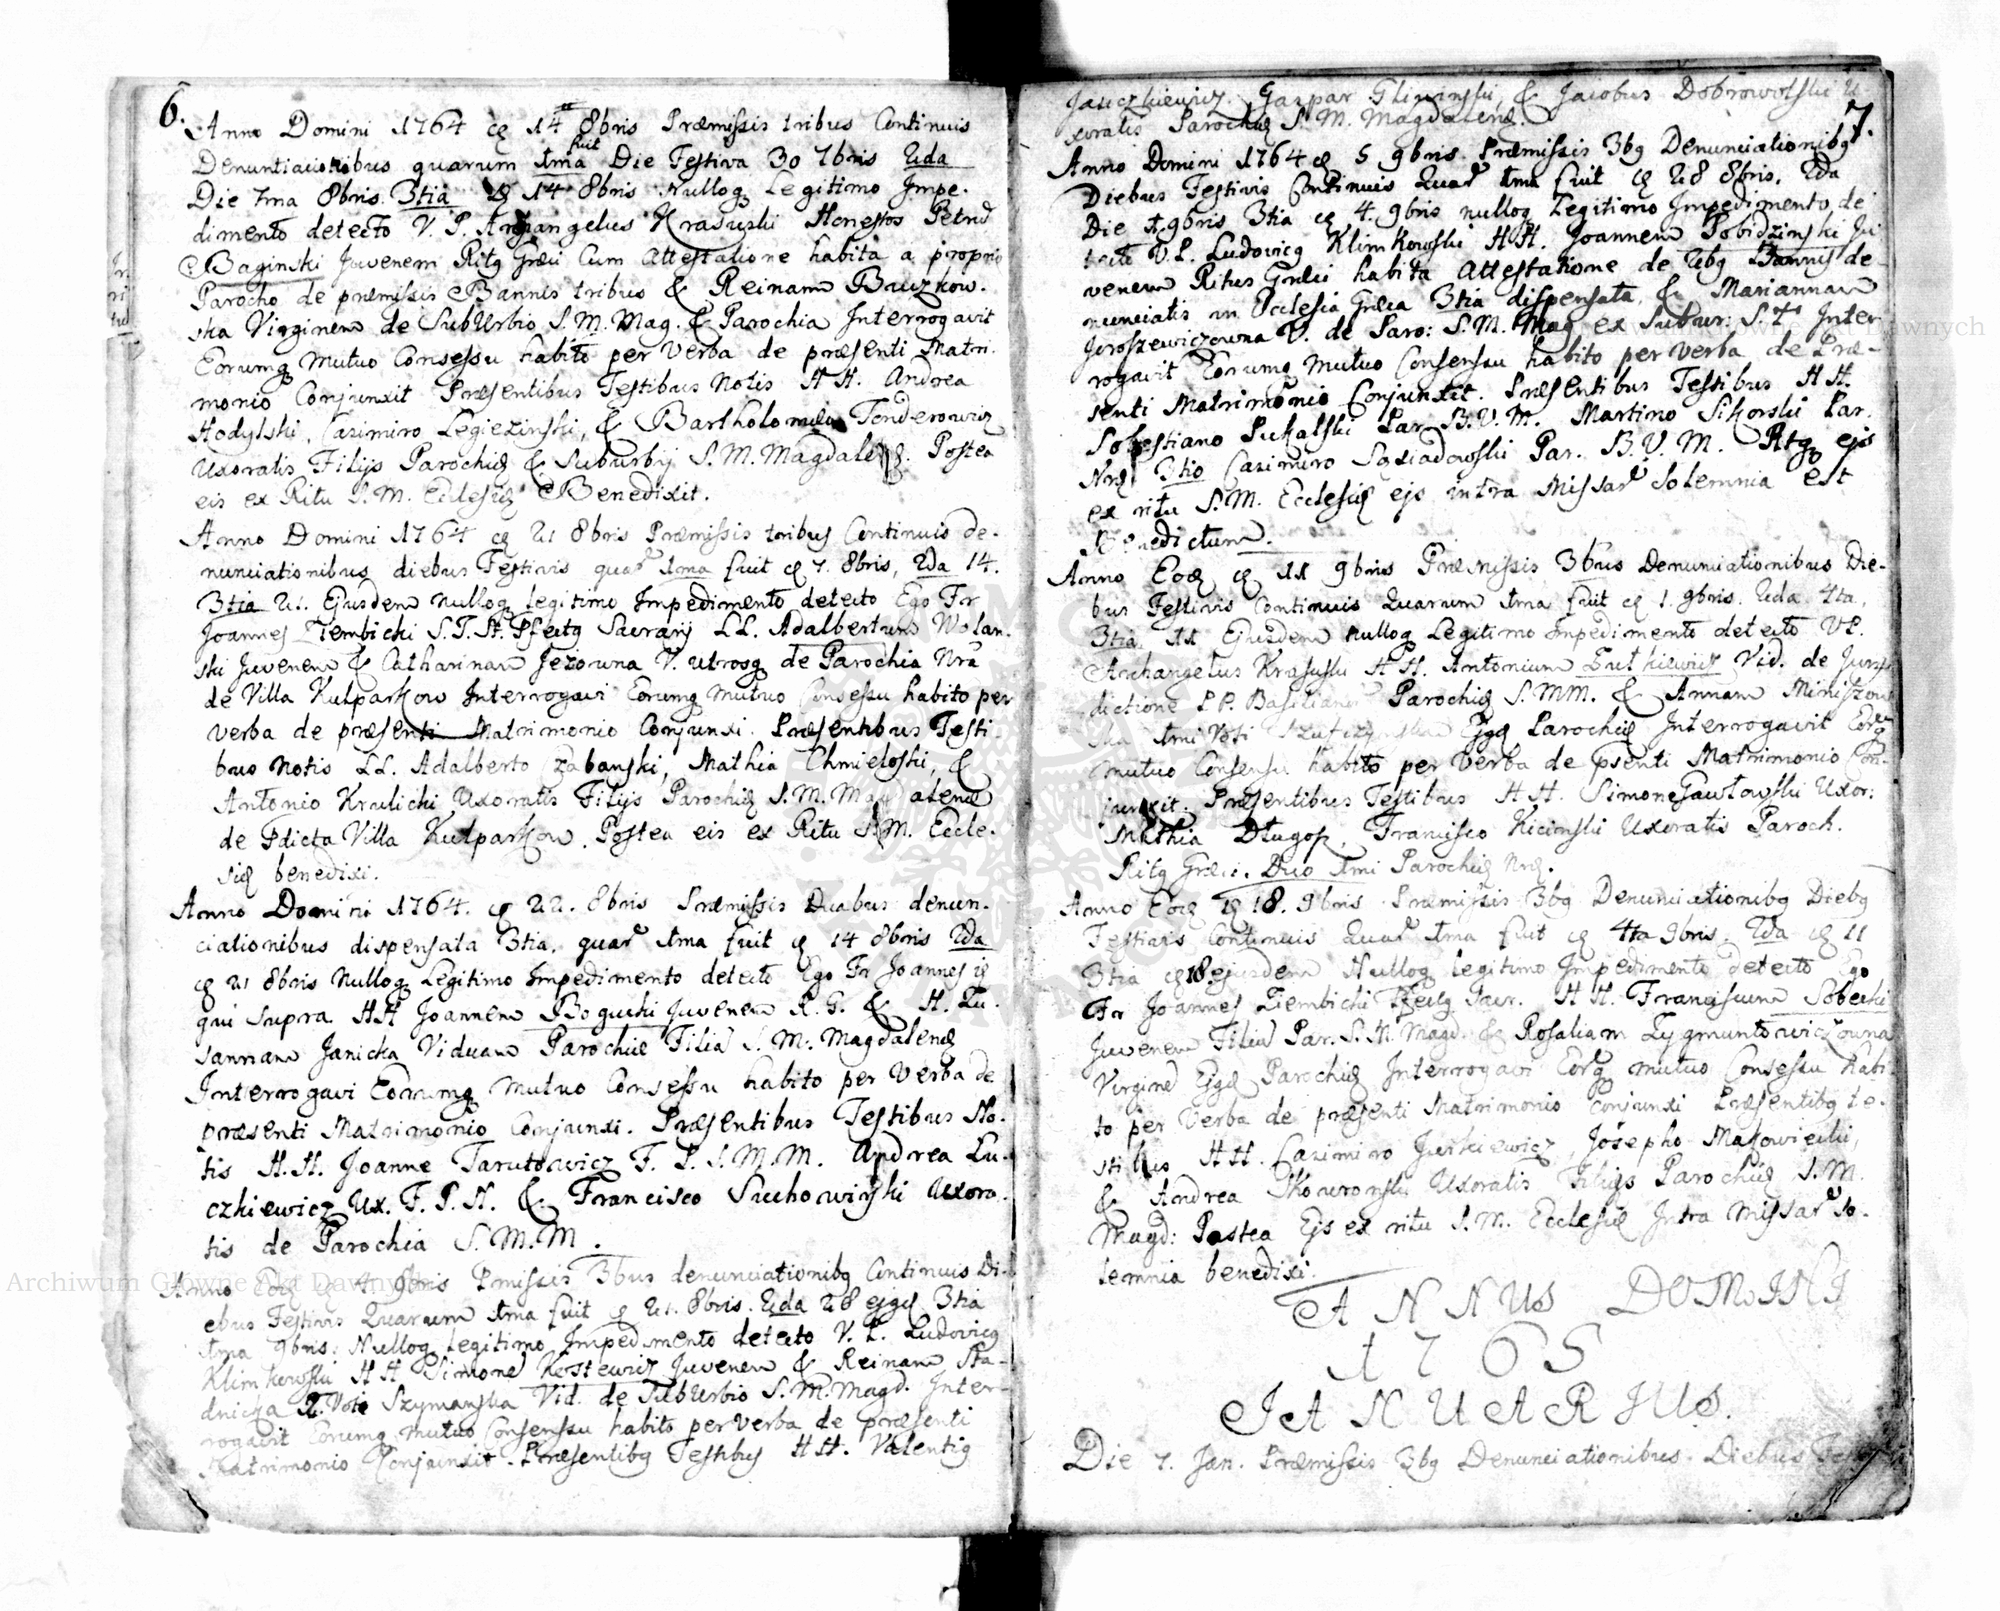 6.
Anno Domini 1764 cę 14 8bris Præmissis tribus Continuis
Denuntiationibus quarum 1ma fuit Die Festiva 30 7bris 2da
Die 7ma 8bris. 3tia 14 8bris nulloq Legitimo Impe.
dimento detecto V. P. Archangelus Krasuski Honestos Petrũ
Baginski Juvenem Ritq Græci Cum Attestatione habita a proprio
Parocho de præmissis Bannis tribus & Reinam Baczkow.
ska Virginem de SubUrbio S. M. Mag. & Parochia Interrogavit
Eorumq mutuo Consessu habito per Verba de præsenti Matri.
monio Conjunxit Præsentibus Testibus Notis H H. Andrea
Hodylski, Casimiro Legiezinski, & Bartholomeo Tenderowicz
Uxoratis Filijs Parochię & Suburbij S. M. Magdalenę. Postea
eis ex Ritu S. M. Ecclesię Benedixit.
Anno Domini 1764 cę 21 8bris Præmissis tribus Continuis de-
nunciationibus diebus Festivis quar 1ma fuit cę 7. 8bris, 2da 14.
3tia 21. Ejusdem nulloq legitimo Impedimento detecto Ego Fr
Joannes Ziembicki S. T. H. Pfectq Sacrarij LL. Adalbertum Wolan.
ski Juvenem & Catharinam Jezowna V. utrosq de Parochia Nrã
de Villa Kulparkow Interrogavi Eorumq mutuo Consessu habito per
verba de præsenti Matrimonio Conjunxi. Præsentibus Testi-
bus Notis LL. Adalberto Czabanski, Mathia Chmieloski, &
Antonio Krulicki Uxoratis Filijs Parochię S. M. Magdalenę
de Pdicta Villa Kulparkow. Postea eis ex Ritu S. M. Eccle.
się benedixi.
Anno Domini 1764. cę 22. 8bris Præmissis Duabus denun.
ciationibus dispensata 3tia. quar 1ma fuit cę 14 8bris 2da
cę 21 8bris Nulloq Legitimo Impedimento detecto Ego Fr Joannes
qui supra HH Joannem Bogucki Juvenem R. G. & H. Zu.
sannam Janicka Viduam Parochię Filia S. M. Magdalenę
Interrogavi Eorumq mutuo Consessu habito per Verba de
præsenti Matrimonio Conjunxi. Præsentibus Testibus No.
tis H. H. Joanne Tarutowicz F. P. S. M. M. Andrea Lu.
czkiewicz Ux. F. P. N. & Francisco Suchowinski Uxora.
tis de Parochia S. M. M.
Anno Eoę cę 4 9bris Pmissis 3bus denunciationibq Continuis Di-
ebus Festivis Quarum 1ma fuit cę 21. 8bris. 2da 28 ejqd 3tia
1ma 9bris. Nulloq legitimo Impedimento detecto V. P. Ludovicq
Klimkowski HH Simonem Kostewicz Juvenem & Reinam Sta-
dnicka 2. Voti Szymanska Vid. de SubUrbio S. M. Magd. Inter-
rogavit Eorumq mutuo Consensu habito per Verba de præsenti
Matrimonio Conjunxit. Præsentibq Testibus HH. Valentiq
Janczkiewicz. Gaspar Gliwinski, & Jacobus Dobrowolski U
xoratis Parochię S. M. Magdalenę.
7.
Anno Domini 1764 cę 5 9bris Præmissis 3bq Denunciationibq
Diebus Festivis Continuis Quar 1ma fuit cę 28 8bris. 2da
Die 1. 9bris 3tia cę 4. 9bris nulloq Legitimo Impedimento de
tecto V. P. Ludovicq Klimkowski HH. Joannem Pobidzinski Ju
venem Ritus Græci habita Attestatione de 2bq Bannis de
nunciatis in Ecclesia Græca 3tia dispensata & Mariannam
Jaroszewiczowna V. de Paro: S. M. Mag. ex Subur: S. Inter
rogavit Eorumq mutuo Consensu habito per Verba de Præ-
senti Matrimonio Conjunxit. Præsentibus Testibus HH.
Sebestiano Pukalski Par. B. V. M. Martino Sikorski Par.
Nrę 3tio Casimiro Sąsiadowski Par. B. V. M. Rtq ejs
ex ritu S. M. Ecclesię ejs intra Missar Solemnia est
Benedictum.
Anno Eoę cę 11 9bris Præmissis 3bus Denunciationibus Die-
bus Festivis Continuis Quarum 1ma fuit cę 1. 9bris. 2da 4ta,
3tia 11 Ejusdem nulloq Legitimo Impedimento detecto VP.
Archangelus Krasuski HH. Antonium Vid. de Juris
dictione P. P. Basilian Parochię S. MM. & Annam
ska 1mi Voti Ejqd Parochię Interrogavit Eorq
mutuo Consensu habito per Verba de psenti Matrimonio Con-
junxit. Præsentibus Testibus HH. Simone Gawlowski Uxor:
Mathia Dlugosz, Francisco Kicinski Uxoratis Paroch.
Ritq Græci. Duo 1mi Parochię Nrę.
Anno Eoę cę 18. 9bris Præmissis 3bq Denunciationibq Diebq
Festivis Continuis Quar 1ma fuit cę 4ta 9bris. 2da cę 11
3tia cę 18. ejusdem Nulloq legitimo Impedimento detecto Ego
Fr Joannes Ziembicki Pfectq Sacr. HH. Franciscum Sobecki
Juvenem Filiũ Par. S. M. Magd. & Rosaliam Zygmuntowiczowna
Virginẽ Ejqd Parochię Interrogavi Eorq mutuo Consessu habi-
to per Verba de præsenti Matrimonio Conjunxi Præsentibq te-
stibus HH. Casimiro Jurkiewicz, Josepho Masowiecki,
& Andrea Skowronski Uxoratis Filijs Parochię S. M.
Magd: Postea Ejs ex ritu S. M. Ecclesię Intra Missar so-
lemnia benedixi.
ANNUS DOMINI
1765
IANUARIUS.
Die 7. Jan. Præmissis 3bq Denunciationibus. Diebus
Archiwum Główne Akt Dawnych